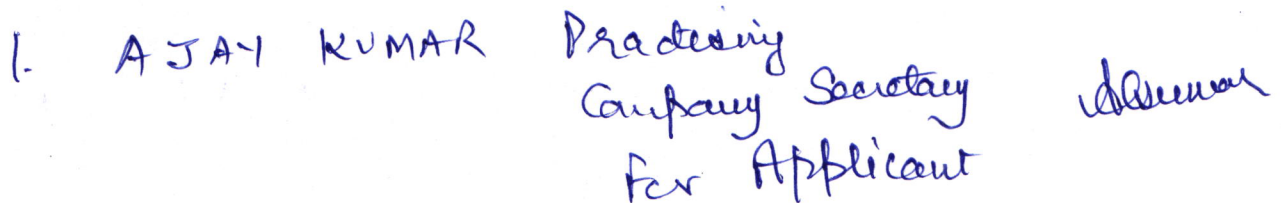 1. AJAY KUMAR Practising
Company Secretary
for Applicant